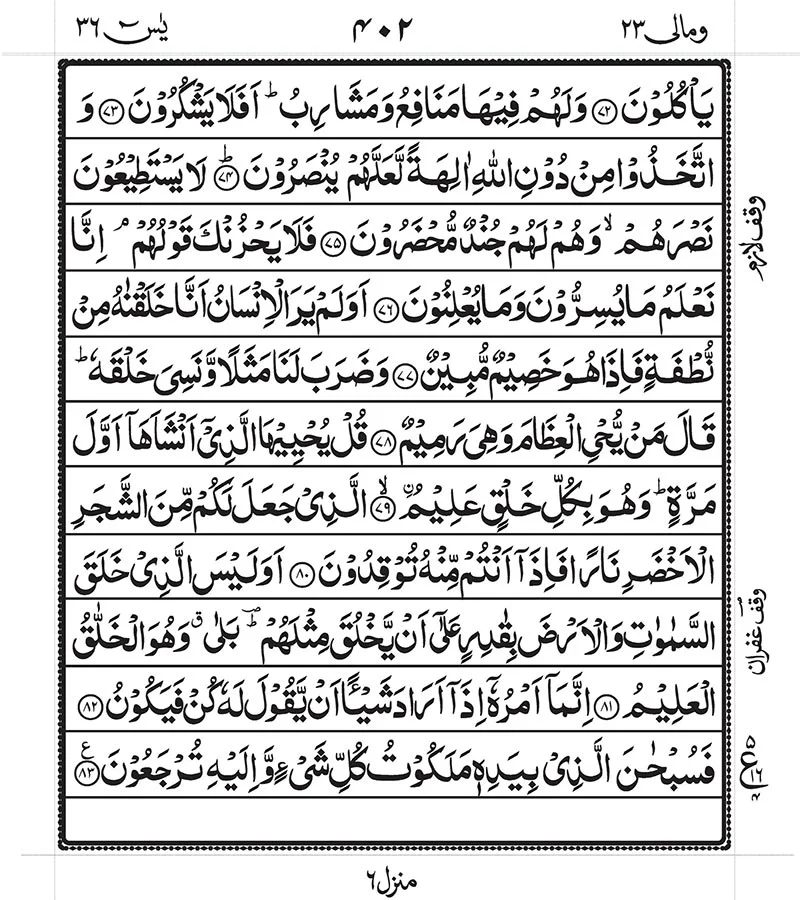 ومالی ۲۳
۴۰۲
یٰسٓ ۳۶
يَاۡكُلُوۡنَ ۷۲ وَلَهُمۡ فِيۡهَا مَنَافِعُ وَمَشَارِبُ ؕ اَفَلَا يَشۡكُرُوۡنَ ۷۳ وَ
اتَّخَذُوۡا مِنۡ دُوۡنِ اللّٰهِ اٰلِهَةً لَّعَلَّهُمۡ يُنۡصَرُوۡنَ ؕ ۷۴ لَا يَسۡتَطِيۡعُوۡنَ
نَصۡرَهُمۡ ۙ وَهُمۡ لَهُمۡ جُنۡدٌ مُّحۡضَرُوۡنَ ۷۵ فَلَا يَحۡزُنۡكَ قَوۡلُهُمۡ ۘ اِنَّا
نَعۡلَمُ مَا يُسِرُّوۡنَ وَمَا يُعۡلِنُوۡنَ ۷۶ اَوَلَمۡ يَرَ الۡاِنۡسَانُ اَنَّا خَلَقۡنٰهُ مِنۡ
نُّطۡفَةٍ فَاِذَا هُوَ خَصِيۡمٌ مُّبِيۡنٌ ۷۷ وَضَرَبَ لَنَا مَثَلًا وَّنَسِىَ خَلۡقَهٗ ؕ
قَالَ مَنۡ يُّحۡىِ الۡعِظَامَ وَهِىَ رَمِيۡمٌ ۷۸ قُلۡ يُحۡيِيۡهَا الَّذِىۡۤ اَنۡشَاَهَاۤ اَوَّلَ
مَرَّةٍ ؕ وَهُوَ بِكُلِّ خَلۡقٍ عَلِيۡمُ ۨ ۙ ۷۹ الَّذِىۡ جَعَلَ لَكُمۡ مِّنَ الشَّجَرِ
الۡاَخۡضَرِ نَارًا فَاِذَاۤ اَنۡتُمۡ مِّنۡهُ تُوۡقِدُوۡنَ ۸۰ اَوَلَيۡسَ الَّذِىۡ خَلَقَ
السَّمٰوٰتِ وَالۡاَرۡضَ بِقٰدِرٍ عَلٰٓى اَنۡ يَّخۡلُقَ مِثۡلَهُمۡ ؕ بَلٰى ۤ وَهُوَ الۡخَلّٰقُ
الۡعَلِيۡمُ ۸۱ اِنَّمَاۤ اَمۡرُهٗۤ اِذَاۤ اَرَادَ شَيۡــًٔا اَنۡ يَّقُوۡلَ لَهٗ كُنۡ فَيَكُوۡنُ ۸۲
فَسُبۡحٰنَ الَّذِىۡ بِيَدِهٖ مَلَكُوۡتُ كُلِّ شَىۡءٍ وَّاِلَيۡهِ تُرۡجَعُوۡنَ ۸۳ ع
وقف لازم
وقف غفران
۵
ع
۱۶
۴
منزل ۶